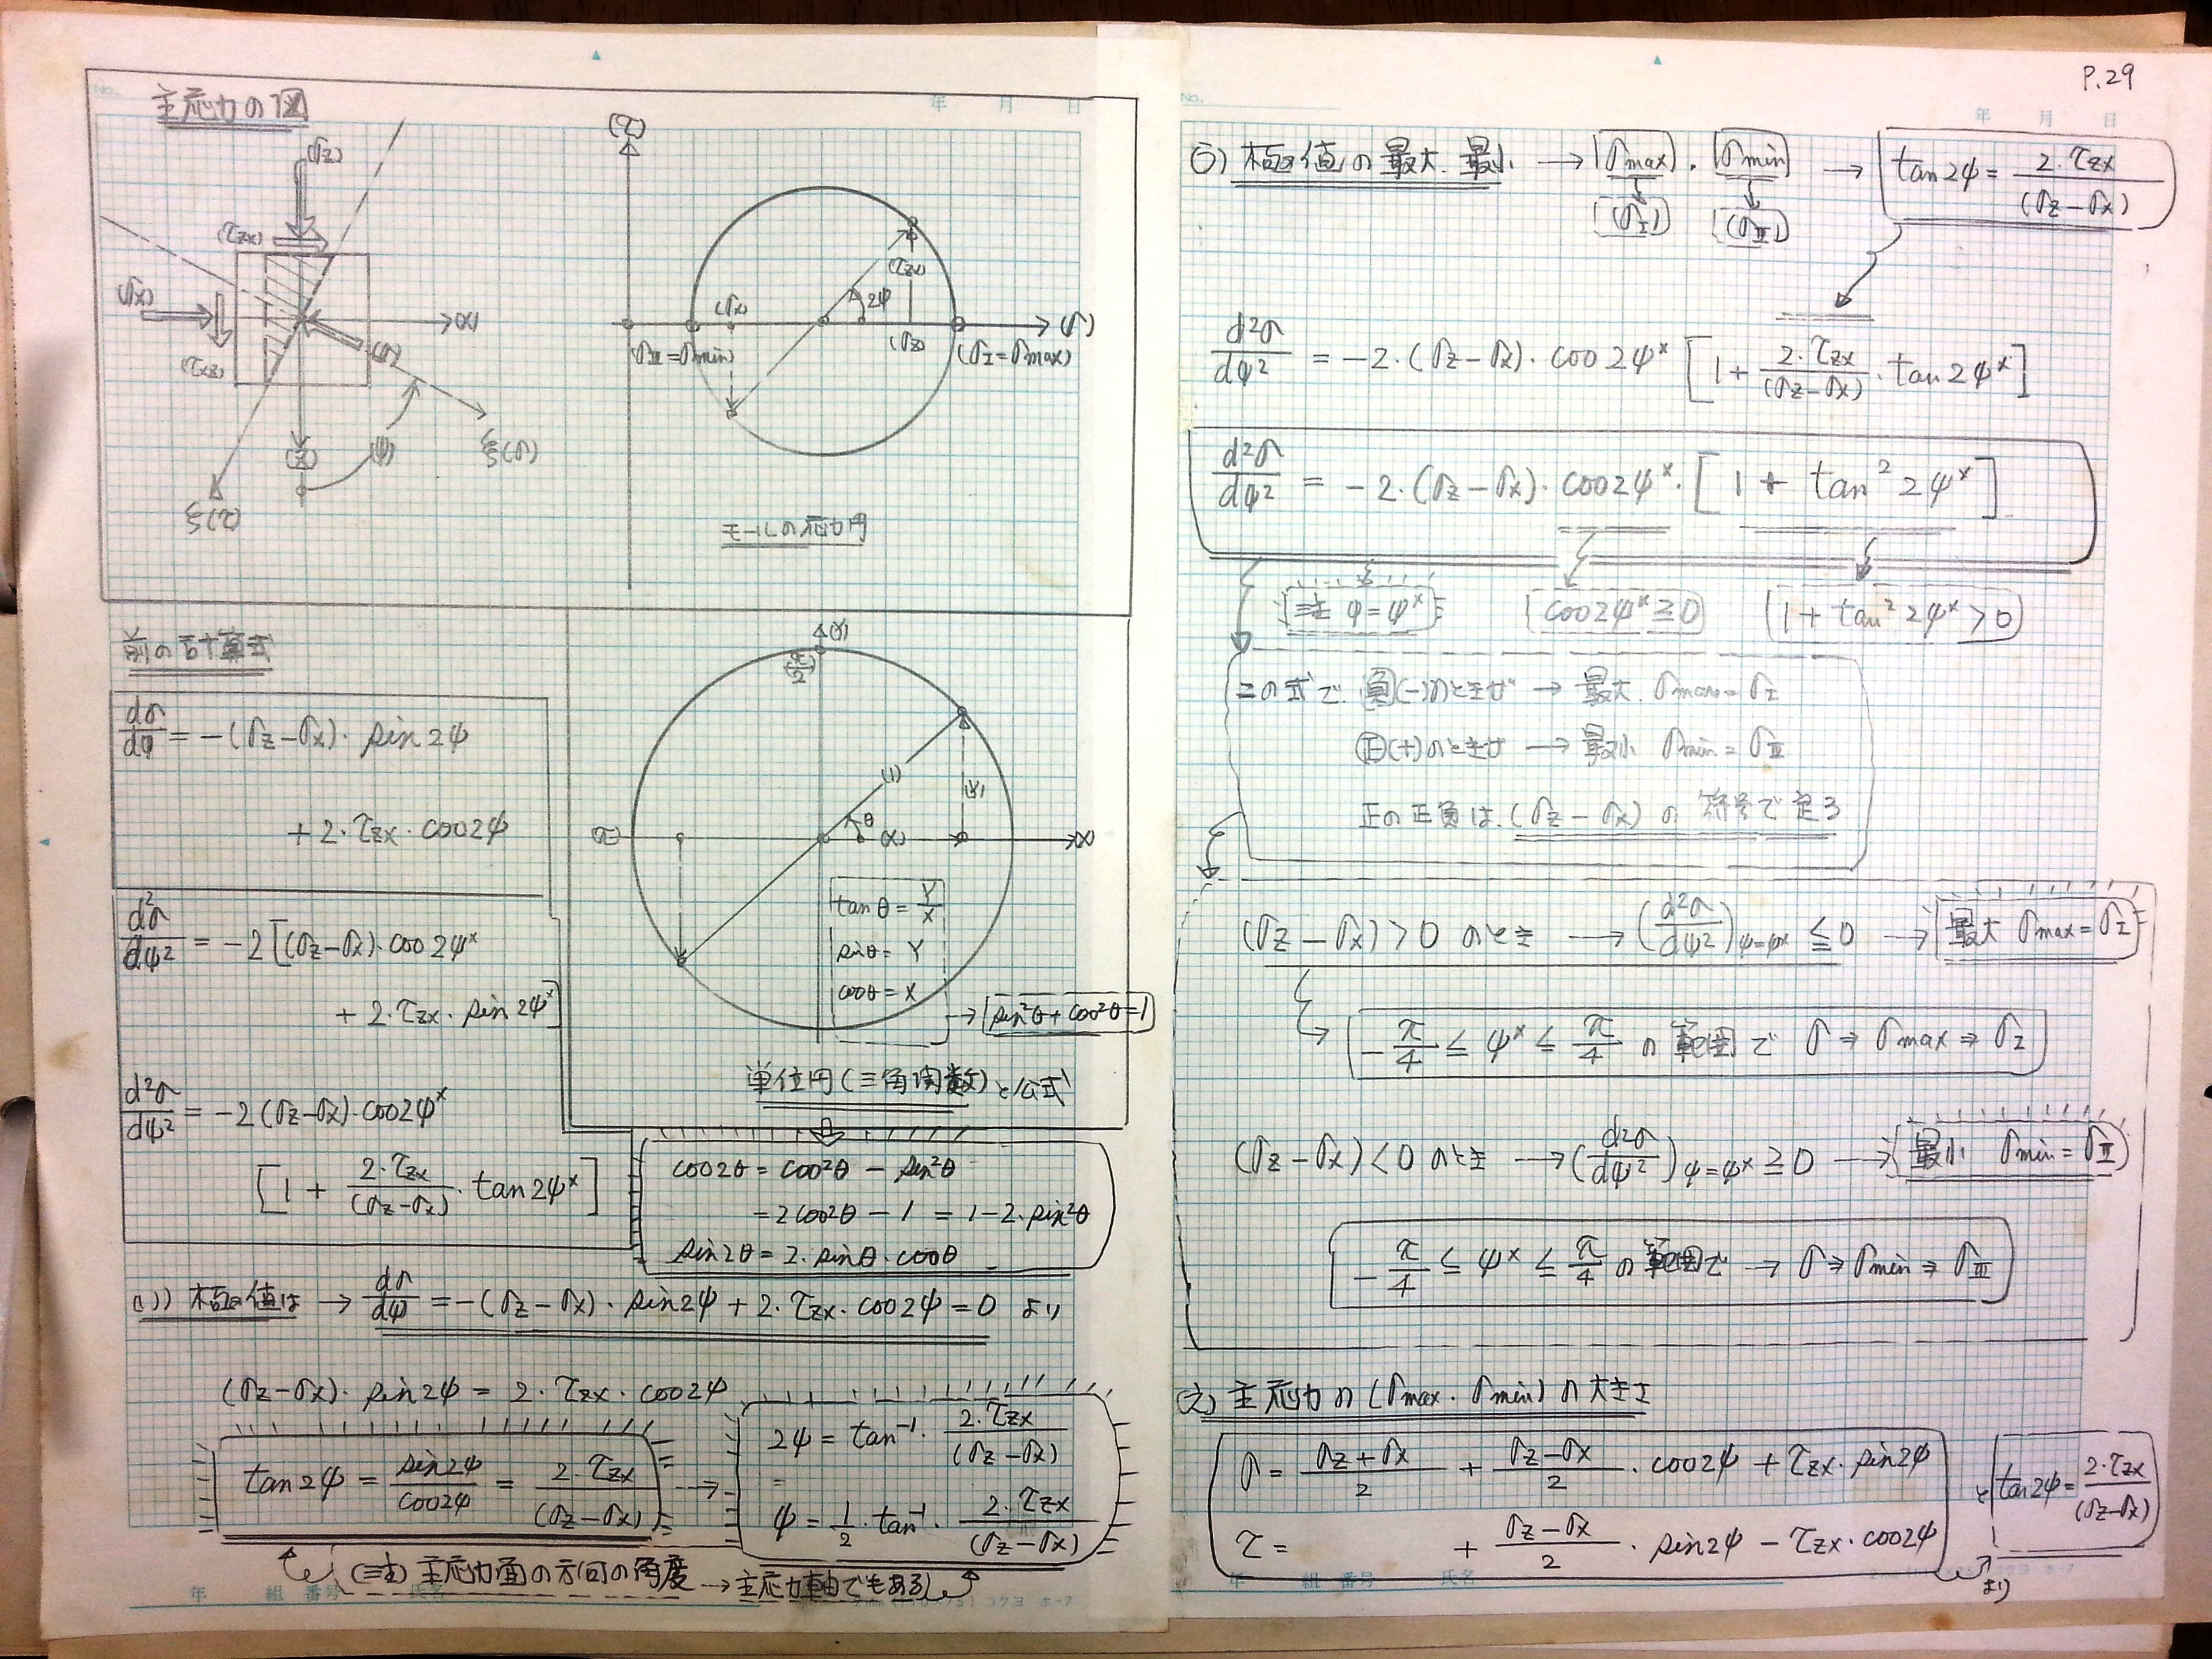 主応力の図
(σz)
(τzx)
(σx)
(τxz)
(x)
(σ)
(z)
(ψ)
ξ(σ)
ξ(τ)
(τ)
(τzx)
(σx)
2ψ
(σz)
(σ)
(σⅢ=σmin)
(σⅠ=σmax)
モールの応力円
前の計算式
dσ/dψ = -(σz-σx)・sin2ψ
+2・τzx・cos2ψ
d²σ/dψ² = -2[(σz-σx)・cos2ψ*
+2・τzx・sin2ψ*]
d²σ/dψ² = -2(σz-σx)・cos2ψ*
[1+ 2・τzx/(σz-σx)・tan2ψ*]
(Y)
(π/2)
(1)
(Y)
θ
(X)
(π)
(X)
tanθ = Y/X
sinθ = Y
cosθ = X
→ sin²θ+cos²θ=1
単位円(三角関数)と公式
cos2θ = cos²θ - sin²θ
=2cos²θ - 1 = 1-2・sin²θ
sin2θ = 2・sinθ・cosθ
い) 極値は → dσ/dψ = -(σz-σx)・sin2ψ + 2・τzx・cos2ψ = 0 より
(σz-σx)・sin2ψ = 2・τzx・cos2ψ
tan2ψ = sin2ψ/cos2ψ = 2・τzx/(σz-σx) →
2ψ = tan⁻¹・2・τzx/(σz-σx)
ψ = 1/2・tan⁻¹・2・τzx/(σz-σx)
(注) 主応力面の方向の角度 → 主応力軸でもある)
年 組 番号 氏名
P.29
No.
年 月 日
う) 極値の最大.最小 → σmax . σmin → tan2ψ = 2・τzx/(σz-σx)
(σⅠ) (σⅢ)
d²σ/dψ² = -2・(σz-σx)・cos2ψ* [1+ 2・τzx/(σz-σx)・tan2ψ*]
d²σ/dψ² = -2・(σz-σx)・cos2ψ*・[1 + tan²2ψ*]
注 ψ=ψ*
cos2ψ* ≧ 0
1+tan²2ψ* > 0
この式で. 負(-)のときは → 最大. σmax = σⅠ
正(+)のときは → 最小 σmin = σⅢ
正の正負は. (σz-σx) の 符号で定る
(σz-σx)>0 のとき → (d²σ/dψ²)ψ=ψ* ≦ 0 → 最大 σmax=σⅠ
-π/4 ≦ ψ* ≦ π/4 の範囲で σ ⇒ σmax ⇒ σⅠ
(σz-σx)<0 のとき → (d²σ/dψ²)ψ=ψ* ≧ 0 → 最小 σmin=σⅢ
-π/4 ≦ ψ* ≦ π/4 の範囲で → σ ⇒ σmin ⇒ σⅢ
え) 主応力の (σmax・σmin) の大きさ
σ = (σz+σx)/2 + (σz-σx)/2・cos2ψ + τzx・sin2ψ
τ = + (σz-σx)/2・sin2ψ - τzx・cos2ψ
と tan2ψ = 2・τzx/(σz-σx)
より
年 組 番号 氏名